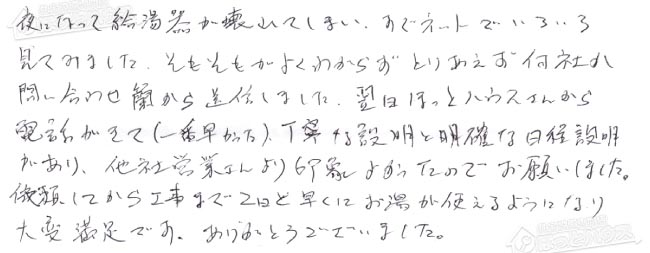 夜になって給湯器が壊れてしまい、すぐネットでいろいろ
見てみました。そもそもがよくわからずとりあえず何社か
問い合わせ蘭から送信しました。翌日ほっとハウスさんから
電話がきて(一番早かった)、丁寧な説明と明確な日程説明
があり、他社営業さんより印象よかったのでお願いしました。
依頼してから工事まで2日と早くにお湯が使えるようになり
大変満足です。ありがとうございました。